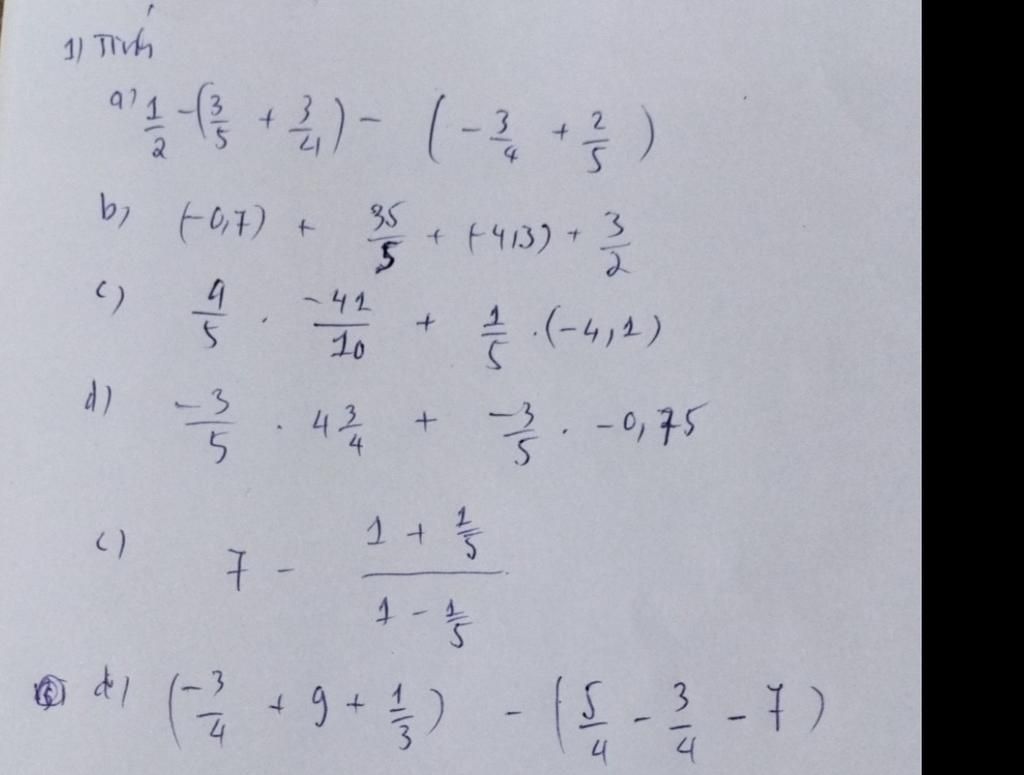 1) Tính
a) 1/2 - (3/5 + 3/4) - (-3/4 + 2/5)
b) (-0,7) + 35/5 + (-4,3) + 3/2
c) 4/5 . -41/10 + 1/5 . (-4,1)
d) -3/5 . 4 3/4 + -3/5 . -0,75
c) 7 - (1 + 1/5)/(1 - 1/5)
d) (-3/4 + 9 + 1/3) - (5/4 - 3/4 - 7)